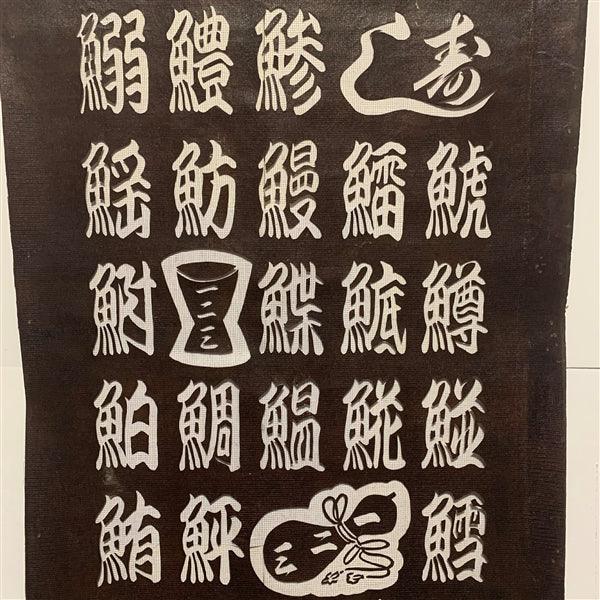 鰯鱧鯵寿し
鰩魴鰻鰡鯱
鮒一二三鰈鯳鱒
鮊鯛鰮𩸽
鮪鮃一二三鱈